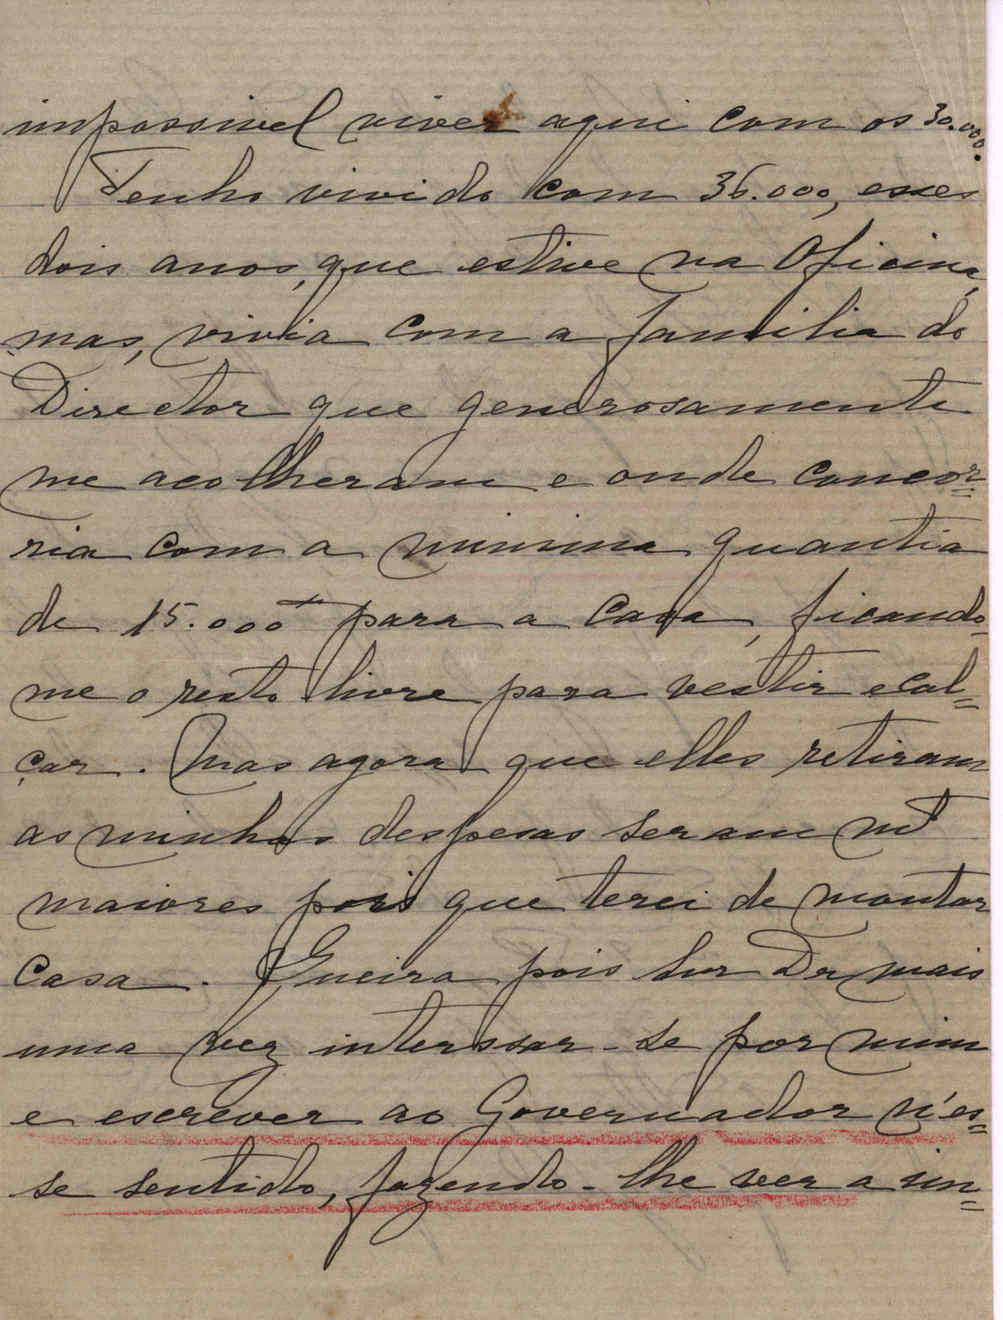 impossivel viver aqui com os 30.000.
Tenho vivido com 36.000, esses
dois anos, que estive na Oficina,
mas, vivia com a familia do
Director que generosamente
me acolheram e onde concor=
ria com a minima quantia
de 15.000 para a casa, ficando-
me o resto livre para vestir e cal=
çar. Mas agora que elles retiram
as minhas despesas seram mt
maiores pois que terei de montar
casa. Queira pois Snr Dr mais
uma vez interssar-se por mim
e escrever ao Governador n'es=
se sentido, fazendo-lhe ver a im=